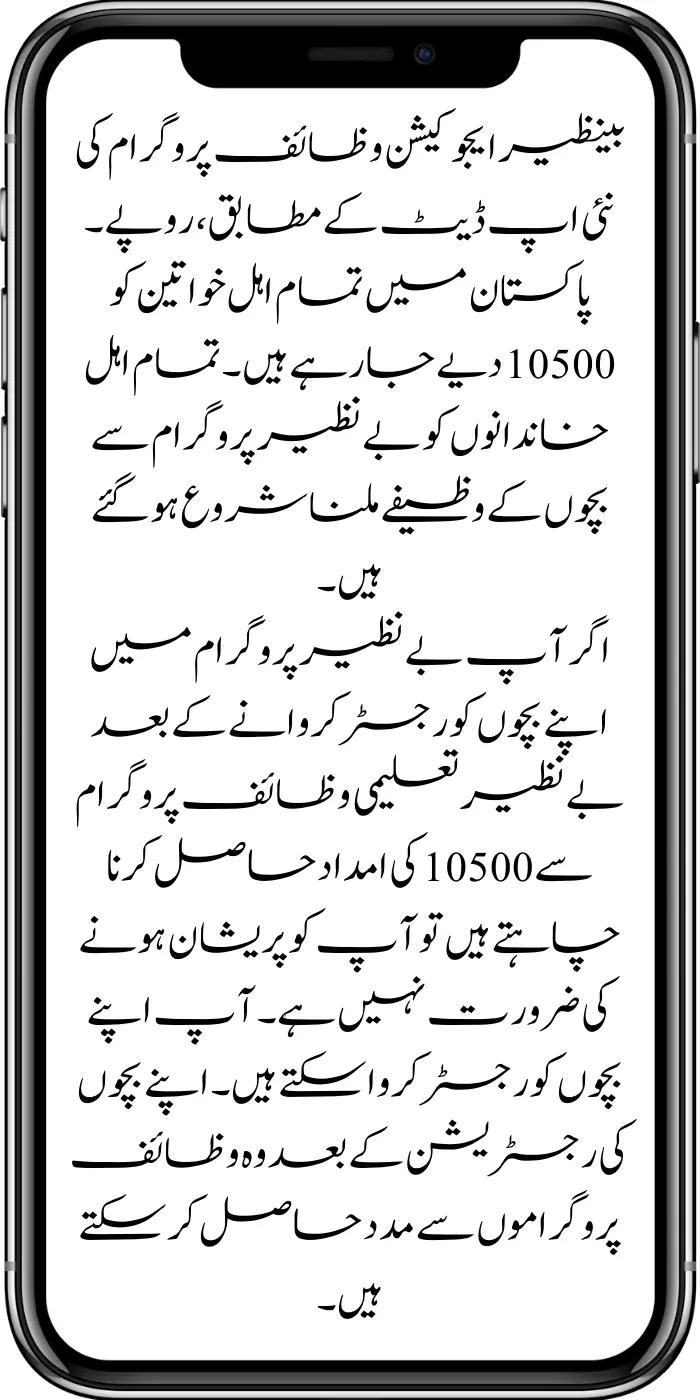 بینظیر ایجوکیشن وظائف پروگرام کی
نئی اپ ڈیٹ کے مطابق، روپے۔
پاکستان میں تمام اہل خواتین کو
10500 دیے جا رہے ہیں۔ تمام اہل
خاندانوں کو بے نظیر پروگرام سے
بچوں کے وظیفے ملنا شروع ہو گئے
ہیں۔
اگر آپ بے نظیر پروگرام میں
اپنے بچوں کو رجسٹر کروانے کے بعد
بے نظیر تعلیمی وظائف پروگرام
سے 10500 کی امداد حاصل کرنا
چاہتے ہیں تو آپ کو پریشان ہونے
کی ضرورت نہیں ہے۔ آپ اپنے
بچوں کو رجسٹر کروا سکتے ہیں۔ اپنے بچوں
کی رجسٹریشن کے بعد وہ وظائف
پروگراموں سے مدد حاصل کر سکتے
ہیں۔